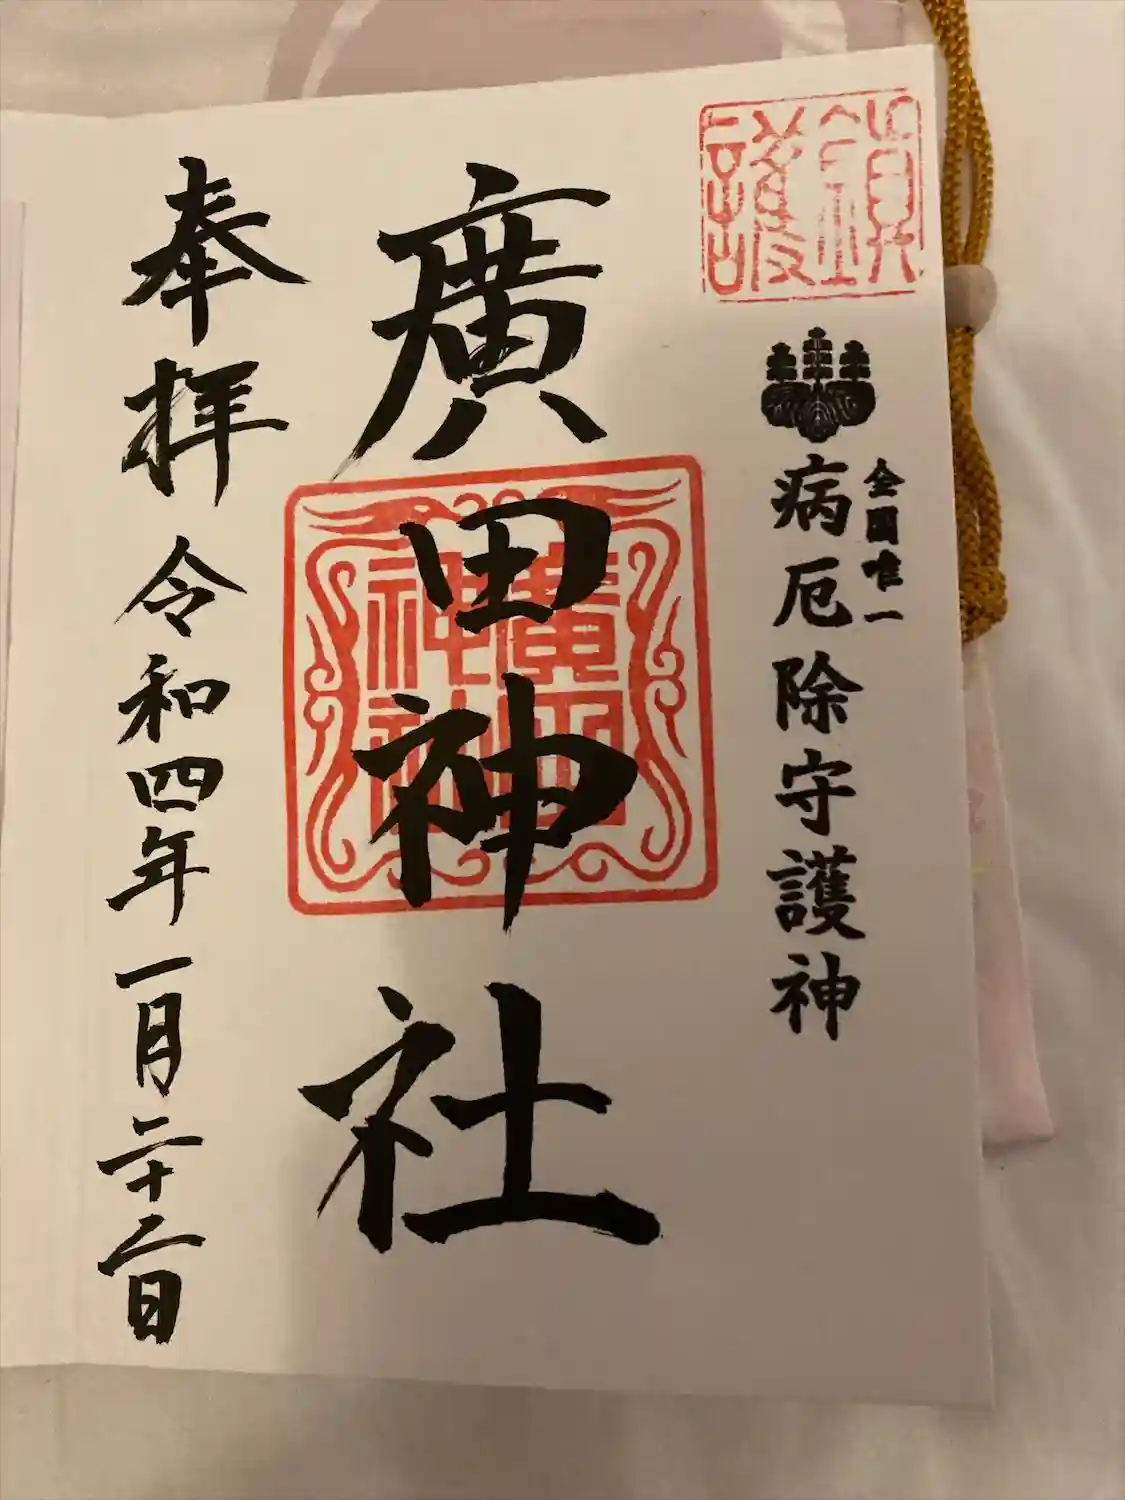 鎮護
全国唯一
病厄除守護神
廣田神社
廣田
神社
奉拝 令和四年一月二十二日